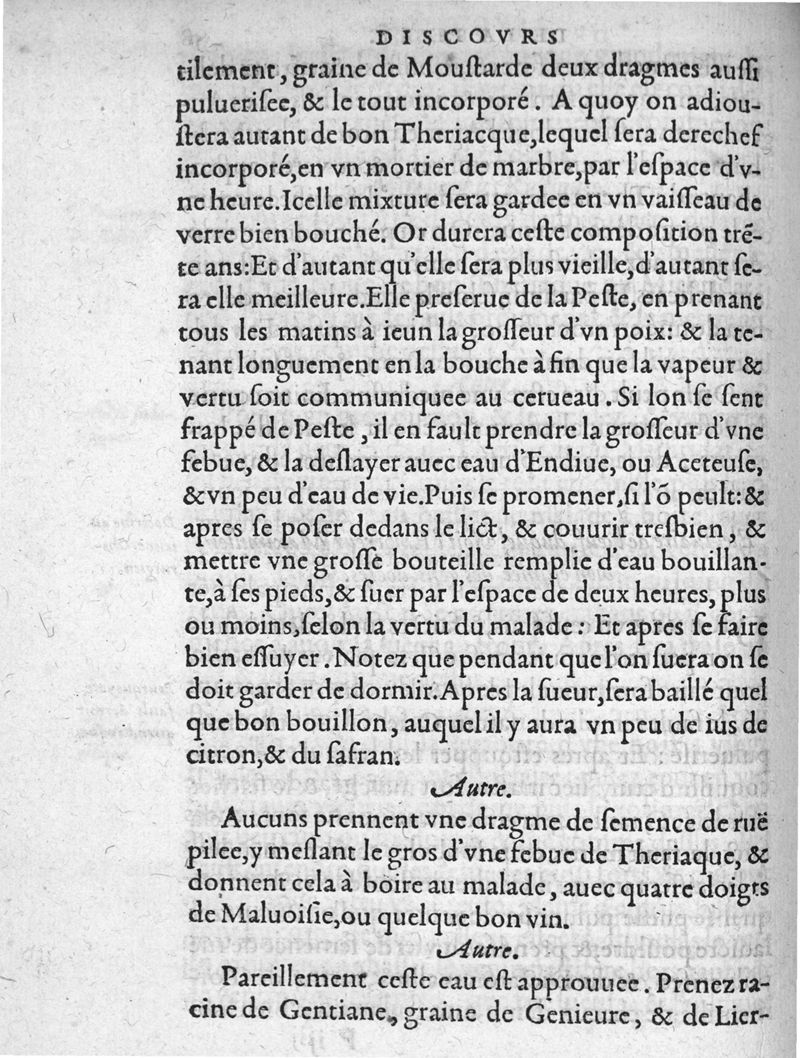 DISCOVRS
tilement, graine de Mouſtarde deux dragmes auſſi
pulueriſee, & le tout incorporé. A quoy on adiou-
ſtera autant de bon Theriacque, lequel ſera derechef
incorporé, en vn mortier de marbre, par l'eſpace d'v-
ne heure. Icelle mixture ſera gardee en vn vaiſſeau de
verre bien bouché. Or durera ceſte compoſition trē-
te ans: Et d'autant qu'elle ſera plus vieille, d'autant ſe-
ra elle meilleure. Elle preſerue de la Peſte, en prenant
tous les matins à ieun la groſſeur d'vn poix: & la te-
nant longuement en la bouche à fin que la vapeur &
vertu ſoit communiquee au cerueau. Si lon ſe ſent
frappé de Peſte, il en fault prendre la groſſeur d'vne
febue, & la deſlayer auec eau d'Endiue, ou Aceteuſe,
& vn peu d'eau de vie. Puis ſe promener, ſi l'õ peult: &
apres ſe poſer dedans le lict, & couurir treſbien, &
mettre vne groſſe bouteille remplie d'eau bouillan-
te, à ſes pieds, & ſuer par l'eſpace de deux heures, plus
ou moins, ſelon la vertu du malade: Et apres ſe faire
bien eſſuyer. Notez que pendant que l'on ſuera on ſe
doit garder de dormir. Apres la ſueur, ſera baillé quel
que bon bouillon, auquel il y aura vn peu de ius de
citron, & du ſafran.
Autre.
Aucuns prennent vne dragme de ſemence de ruë
pilee, y meſlant le gros d'vne febue de Theriaque, &
donnent cela à boire au malade, auec quatre doigts
de Maluoiſie, ou quelque bon vin.
Autre.
Pareillement ceſte eau eſt approuuee. Prenez ra-
cine de Gentiane, graine de Genieure, & de Lier-